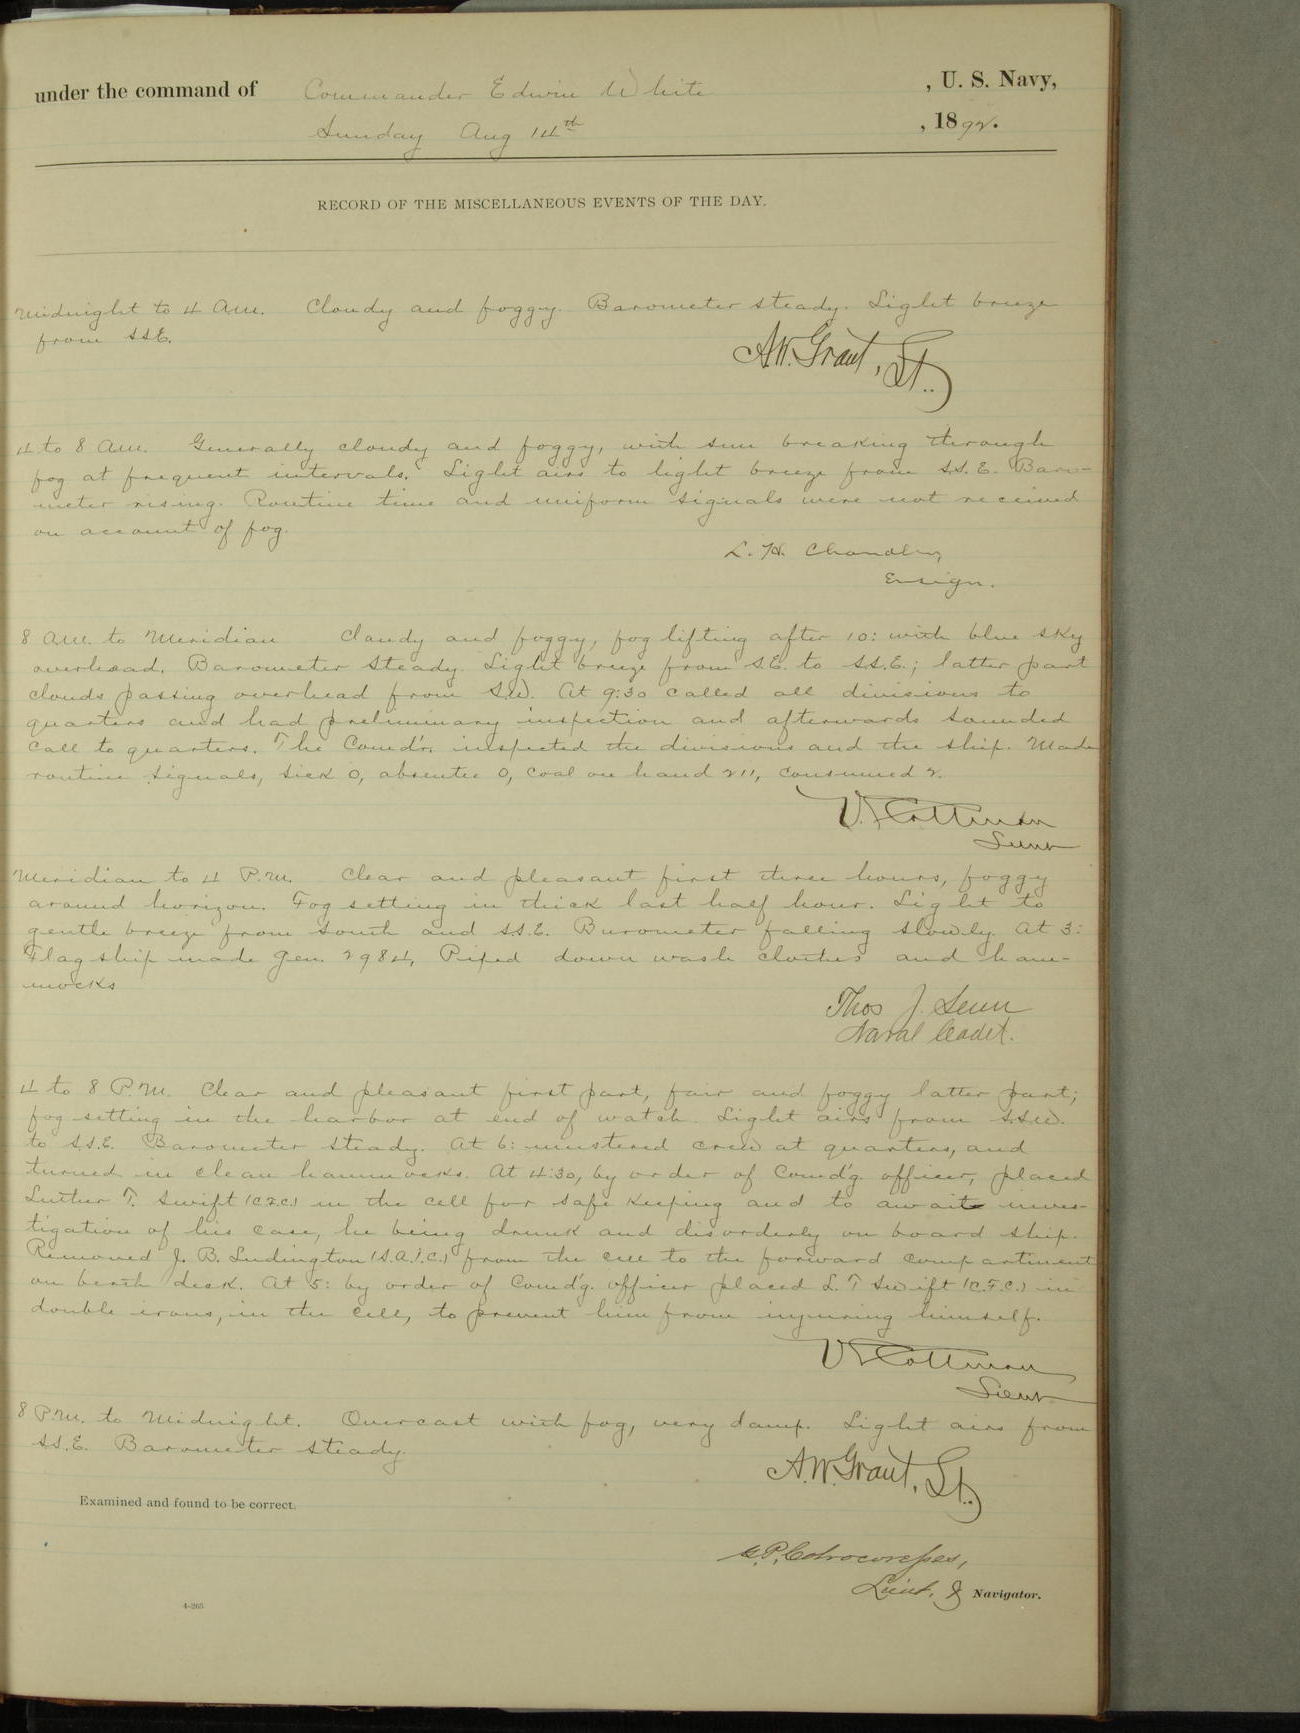 under the command of Commander Edwin White , U. S. Navy,
Sunday Aug 14th , 1892.
RECORD OF THE MISCELLANEOUS EVENTS OF THE DAY.
Midnight to 4 A.M. Cloudy and foggy. Barometer steady. Light breeze
from SSE.
A.W. Grant, Lt.
4 to 8 A.M. Generally cloudy and foggy, with sun breaking through
fog at frequent intervals. Light airs to light breeze from S.S.E. Baro-
meter rising. Routine time and uniform signals were not received
on account of fog.
L. H. Chandler,
Ensign.
8 A.M. to Meridian Cloudy and foggy, fog lifting after 10: with blue sky
overhead. Barometer steady. Light breeze from S.E. to S.S.E.; latter part
clouds passing overhead from S.W. At 9:30 called all divisions to
quarters and had preliminary inspection and afterwards sounded
call to quarters. The Comd'r. inspected the divisions and the ship. Made
routine signals, sick 0, absentee 0, coal on hand 211, consumed 2.
V. L. Cottman
Lieut
Meridian to 4 P.M. Clear and pleasant first three hours, foggy
around horizon. Fog setting in thick last half hour. Light to
gentle breeze from South and SS.E. Barometer falling slowly. At 3:
Flag ship made Gen. 2984, Piped down wash clothes and ham-
mocks
Thos J. Senn
Naval Cadet.
4 to 8 P.M. Clear and pleasant first part, fair and foggy latter part;
fog setting in the harbor at end of watch. Light airs from S.S.W.
to S.S.E. Barometer steady. At 6: mustered crew at quarters, and
turned in clean hammocks. At 4:30, by order of Comd'g. officer, placed
Luther T. Swift (C.F.C.) in the cell for safe keeping and to await inves-
tigation of his case, he being drunk and disorderly on board ship.
Removed J. B. Ludington (S.A.1.C.) from the cell to the forward compartment
on berth deck. At 5: by order of Comd'g. officer placed L. T Swift (C.F.C.) in
double irons, in the cell, to prevent him from injuring himself.
V. L. Cottman
Lieut
8 P.M. to Midnight. Overcast with fog, very damp. Light airs from
SS.E. Barometer steady.
A.W. Grant, Lt.
Examined and found to be correct.
G.P. Colvocoresses,
Lieut. & Navigator.
4-265